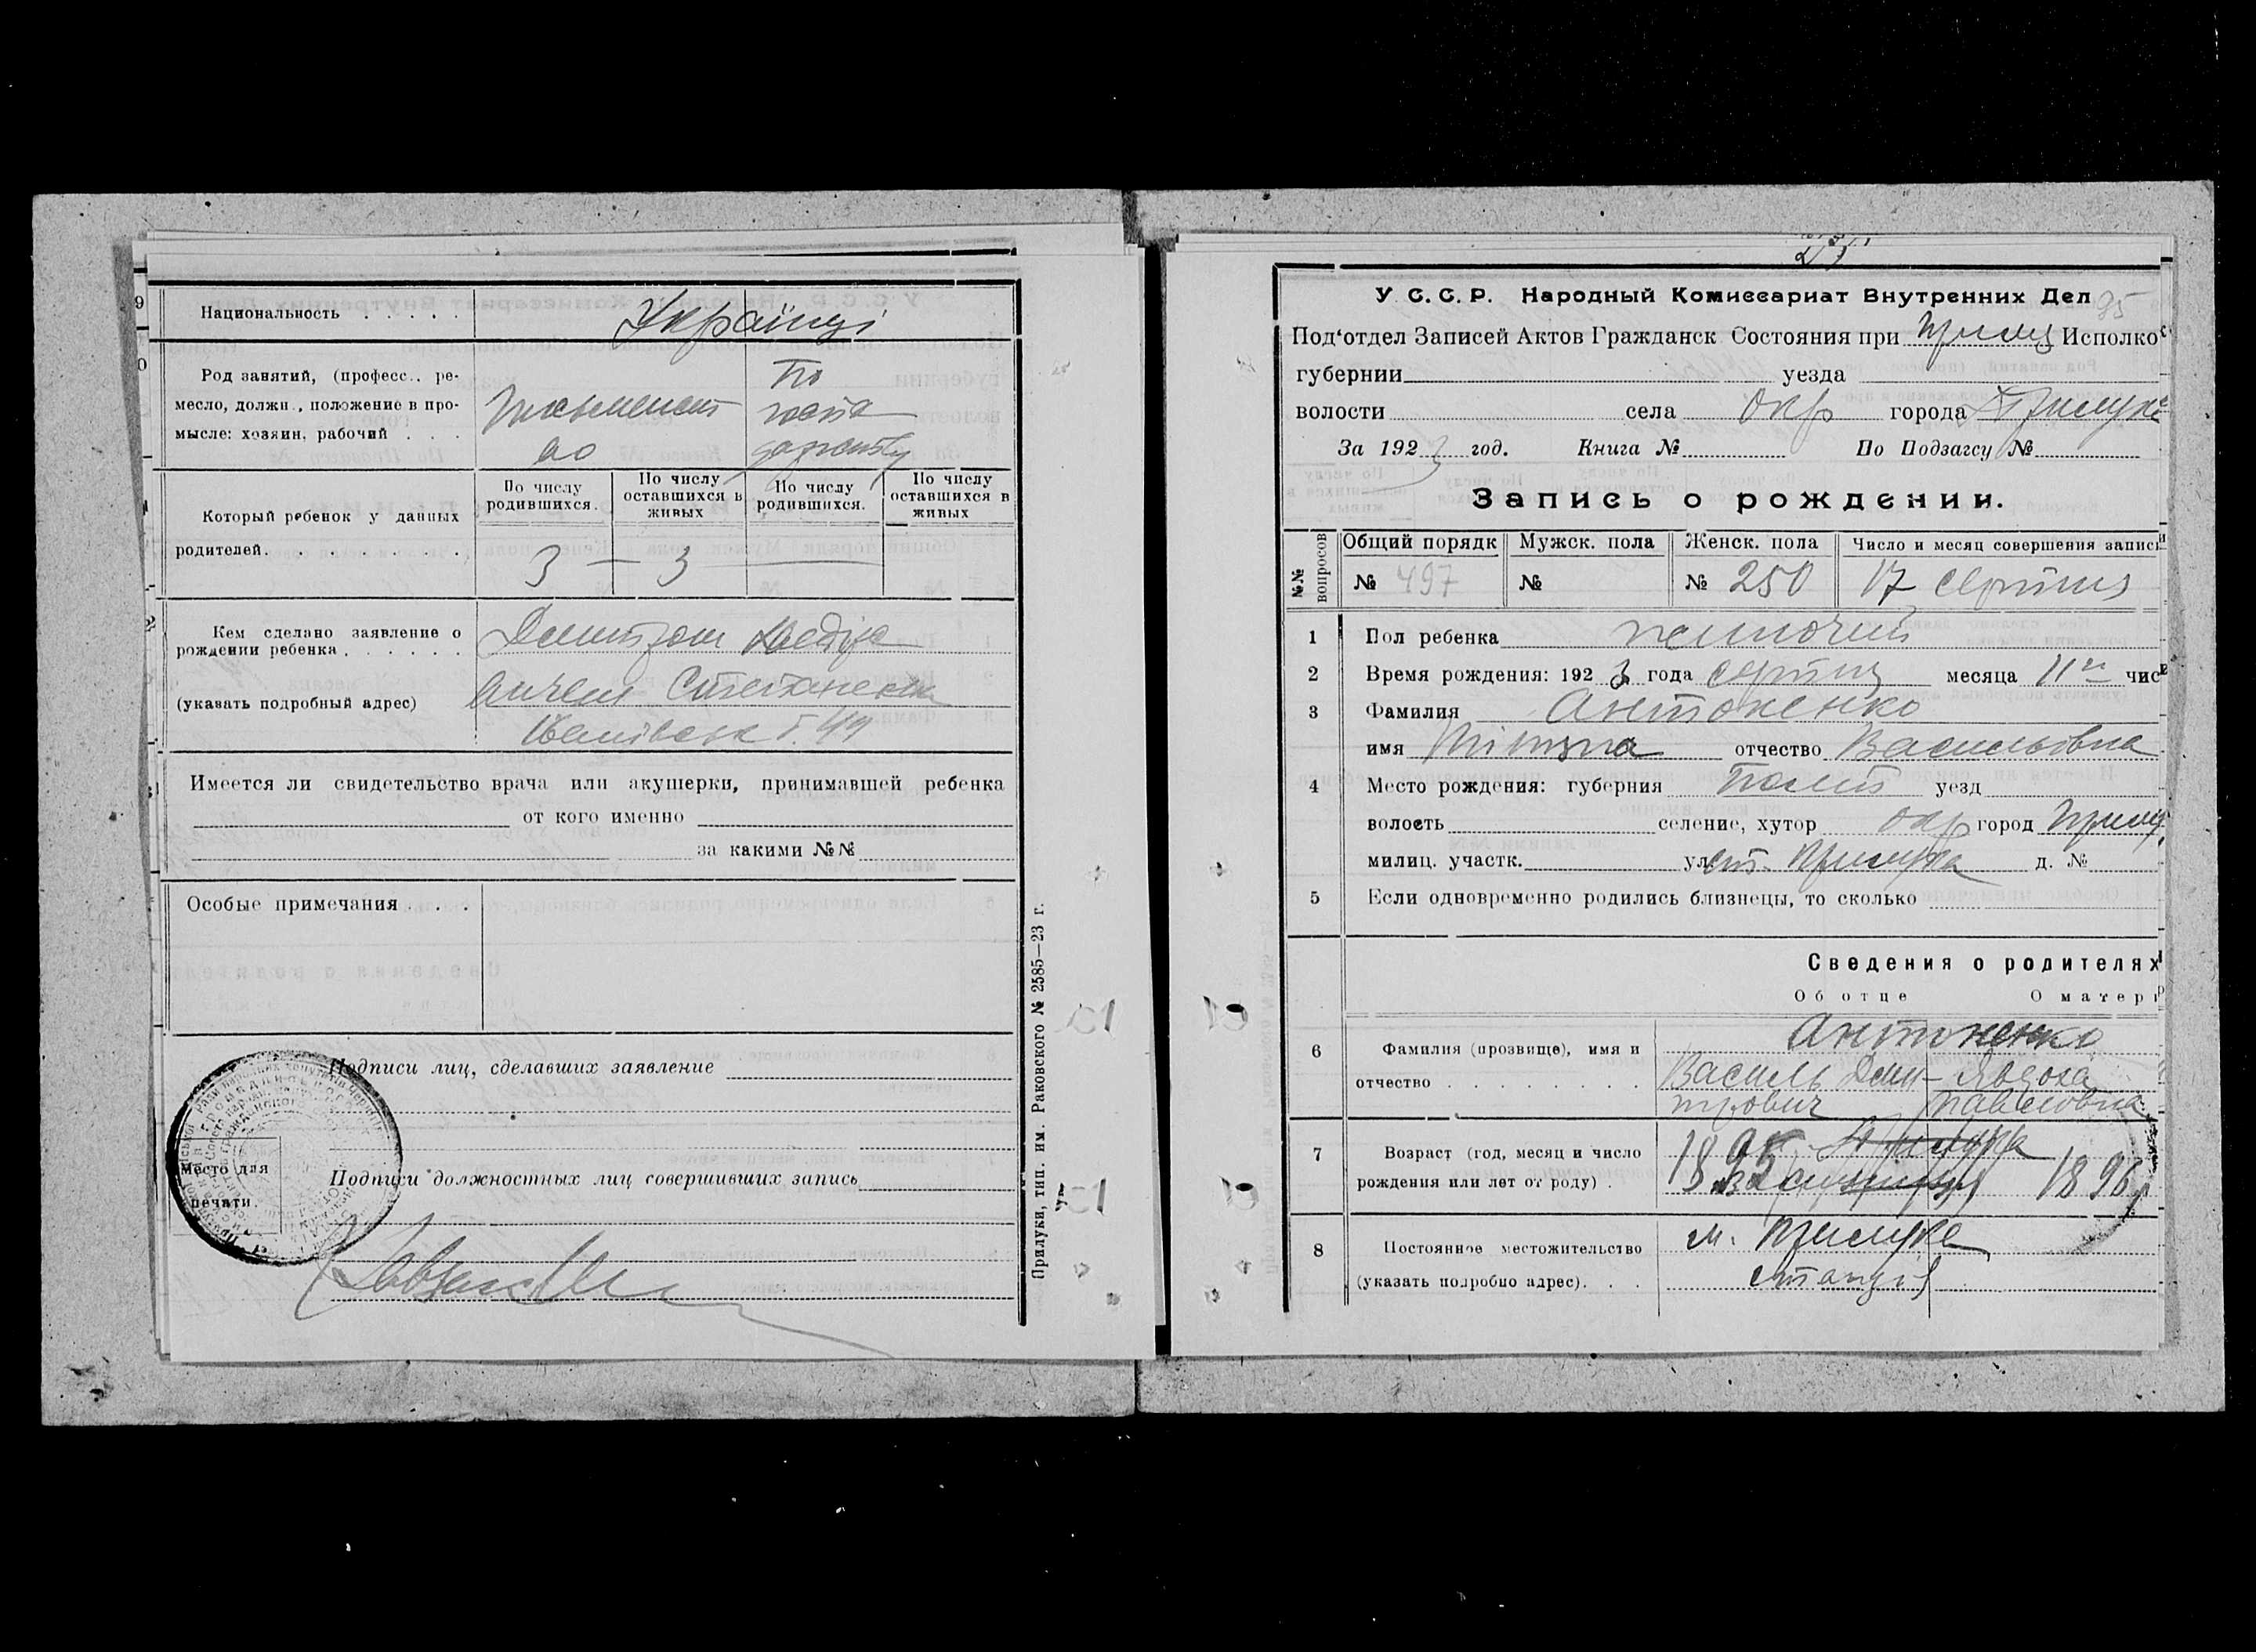 9
Национальность . . . . .
Українці
0
Род занятий, (професс., ре-
месло, должн., положение в про-
мысле: хозяин, рабочий . . .
По
Который ребенок у данных
родителей . . . . . . .
По числу родившихся.
По числу оставшихся в живых
По числу родившихся.
По числу оставшихся в живых
3 — 3
Кем сделано заявление о
рождении ребенка . . . . . .
(указать подробный адрес)
Имеется ли свидетельство врача или акушерки, принимавшей ребенка
от кого именно
за какими №№
Особые примечания . . .
Подписи лиц, сделавших заявление
Место для
печати.
Подписи должностных лиц совершивших запись
Прилуки, тип. им. Раковского № 2585—23 г.
95
У С. С. Р. Народный Комиссариат Внутренних Дел
Под'отдел Записей Актов Гражданск Состояния при Прилуц Исполко
губернии уезда
волости села окр города Прилуки
За 1923 год. Книга № По Подзагсу №
Запись о рождении.
№№ вопросов
Общий порядк Мужск. пола Женск. пола Число и месяц совершения записи
№ 497 № № 250 17 серпня
1 Пол ребенка жіночий
2 Время рождения: 1923 года серпня месяца 11 чис
3 Фамилия Антоненко
имя отчество Васильовна
4 Место рождения: губерния Полт уезд
волость селение, хутор окр город Прилуц
милиц. участк. ул ст. Прилука д. №
5 Если одновременно родились близнецы, то сколько
Сведения о родителях
Об отце О матери
6 Фамилия (прозвище), имя и
отчество . . . . . . . .
Антоненко
Василь Дми- Явдоха
трович Павловна
7 Возраст (год, месяц и число
рождения или лет от роду) .
1895 1896
8 Постоянное местожительство
(указать подробно адрес). . .
м. Прилука
станція